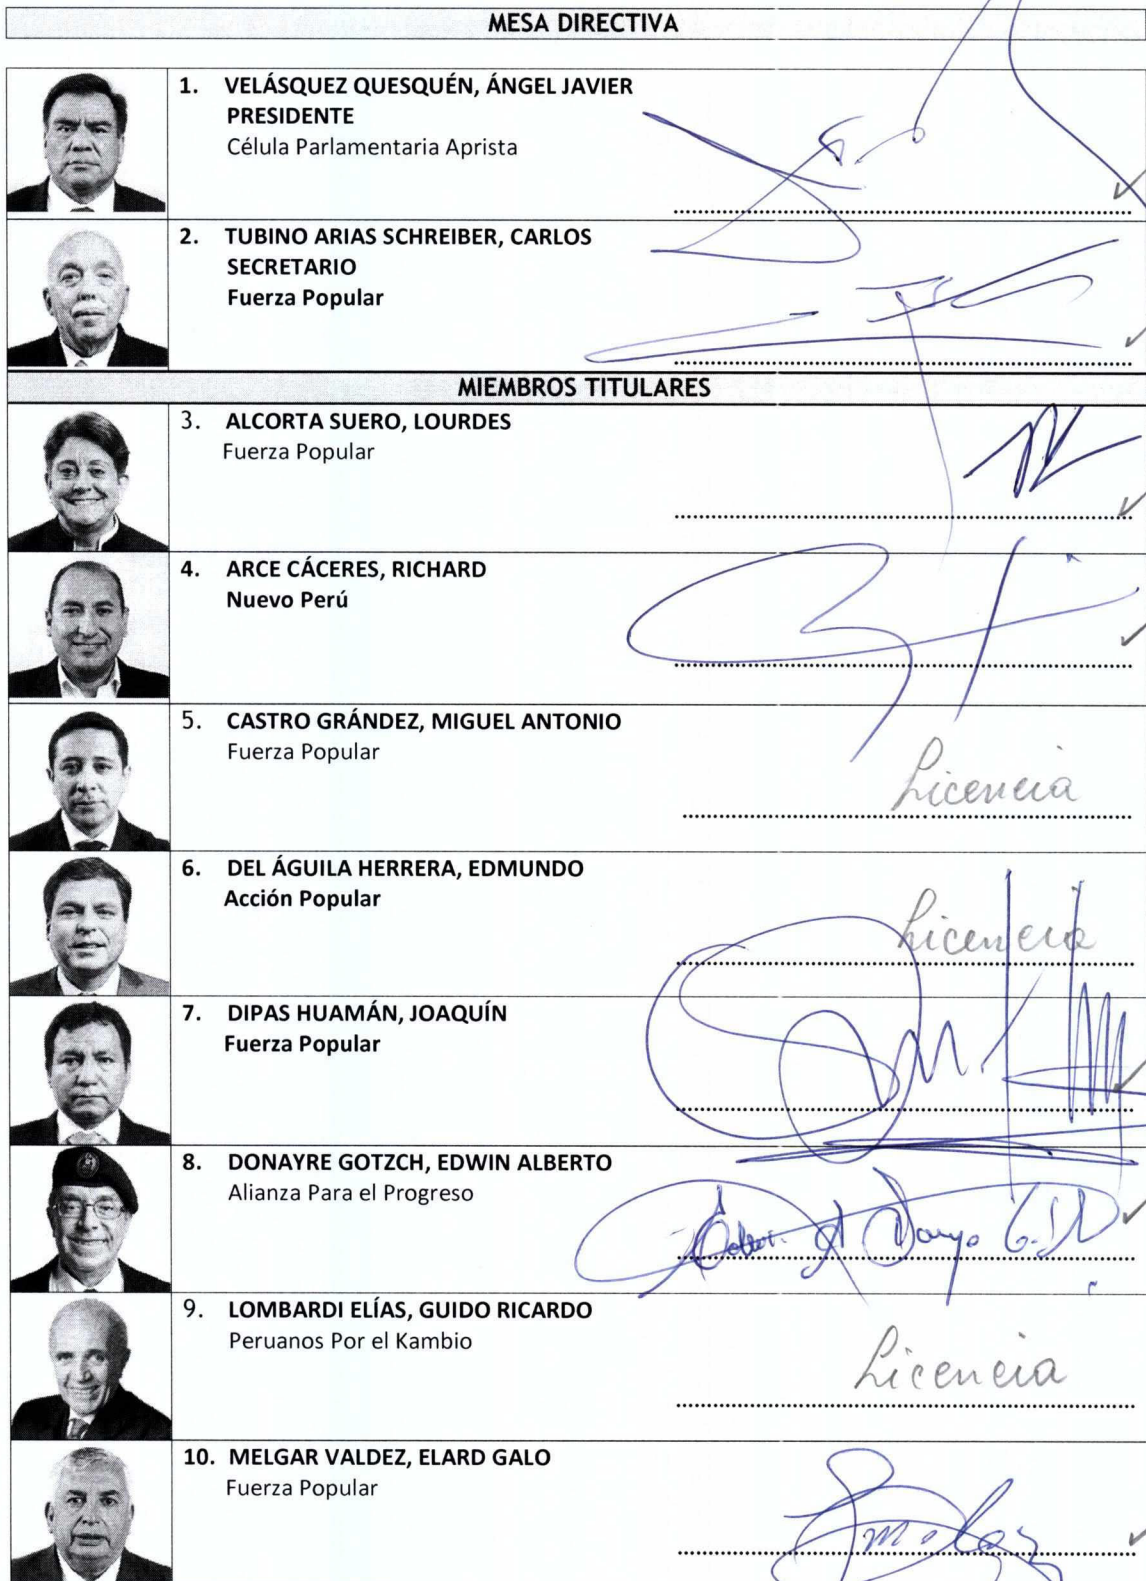 MESA DIRECTIVA
1. VELÁSQUEZ QUESQUÉN, ÁNGEL JAVIER
PRESIDENTE
Célula Parlamentaria Aprista
2. TUBINO ARIAS SCHREIBER, CARLOS
SECRETARIO
Fuerza Popular
MIEMBROS TITULARES
3. ALCORTA SUERO, LOURDES
Fuerza Popular
4. ARCE CÁCERES, RICHARD
Nuevo Perú
5. CASTRO GRÁNDEZ, MIGUEL ANTONIO
Fuerza Popular
Licencia
6. DEL ÁGUILA HERRERA, EDMUNDO
Acción Popular
Licencia
7. DIPAS HUAMÁN, JOAQUÍN
Fuerza Popular
8. DONAYRE GOTZCH, EDWIN ALBERTO
Alianza Para el Progreso
9. LOMBARDI ELÍAS, GUIDO RICARDO
Peruanos Por el Kambio
Licencia
10. MELGAR VALDEZ, ELARD GALO
Fuerza Popular